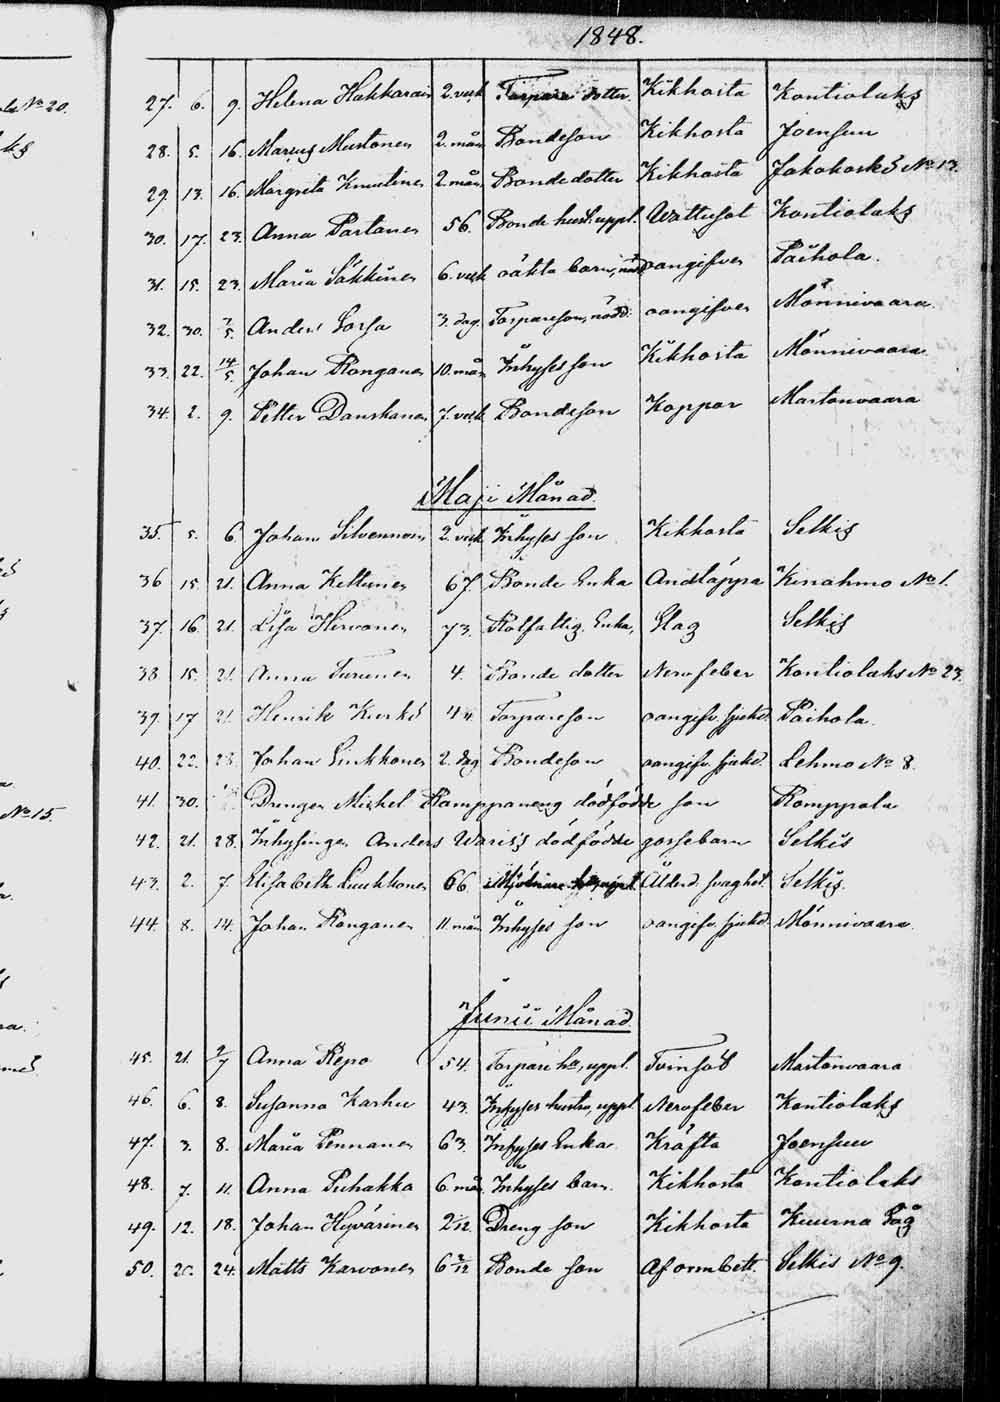 1848.
27. 6. 9. Helena Hakkarain 2. veck Torpare dotter Kikhosta Kontiolaks
28. 5. 16. Marcus Mustonen 2. mån Bondeson Kikhosta Joensuu
29. 13. 16. Margreta Knuutinen 2. mån Bondedotter Kikhosta Jakokoski No 13.
30. 17. 23. Anna Partanen 56. Bonde hust. uppl. Wattusot Kontiolaks
31. 15. 23. Maria Säkkinen 6. veck oäkta barn, oangifven Paihola.
32. 30. 7/5. Anders Sorsa 3. dag. Torpareson, nödd. oangifven Mönnivaara.
33. 22. 14/5. Johan Ronganen 10. mån Inhyses son Kikhosta Mönnivaara.
34. 2. 9. Petter Danskanen 7. veck Bondeson Koppor Martonvaara
Maji Månad.
35. 5. 6 Johan Silvennoin 2. veck Inhyses son Kikhosta Selkis
36 15. 21. Anna Kettunen 67. Bonde Enka Andtäppa Kinahmo No 1.
37. 16. 21. Lisa Hirvonen 73. Rotfattig. Enka, Slag Selkis
38 15. 21. Anna Turunen 4. Bonde dotter Nervfeber Kontiolaks No 23.
39. 17 21. Henrik Kurki 44 Torpareson oangifv. sjukd. Paihola.
40. 22. 28. Johan Linkkonen 2. dag Bondeson oangifv. sjukd. Lehmo No 8.
41. 30. Drengen Mickel Ramppanens dödfödde son Romppala
42. 21. 28. Inhysingen Anders Waris's dödfödde gossebarn Selkis
43. 2. 7. Elisabeth Luukkonen 66 Mjölnare Ålderd. svaghet. Selkis.
44. 8. 14. Johan Ronganen 11. mån Inhyses son oangifv. sjukd. Mönnivaara.
Junii Månad.
45. 21. 2/7 Anna Repo 54. Torpare ha, uppl. Tvinsot Martonvaara
46. 6. 8. Susanna Karhu 43. Inhyses hustru, uppl Nervfeber Kontiolaks
47. 3. 8. Maria Pennanen 63. Inhyses Enka Kräfta Joensuu
48. 7. 11. Anna Puhakka 6 mån. Inhyses barn. Kikhosta Kontiolaks
49. 12. 18. Johan Hyvärinen 2/12. Dreng son Kikhosta Kuurna Såg
50. 20. 24. Matts Karvonen 6 2/12 Bonde son Af ormbett. Selkis No 9.